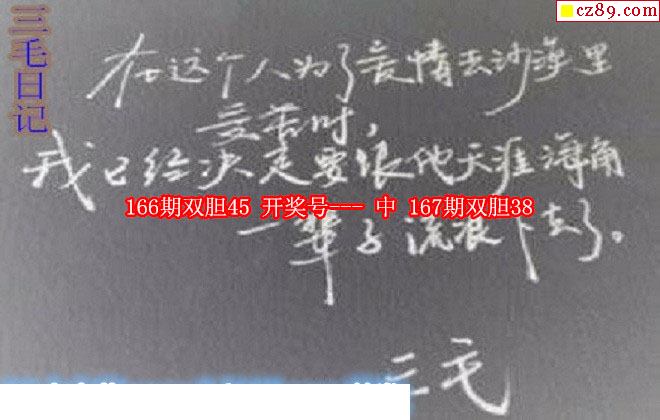 cz89.com
三毛日记
在这个人为了爱情去沙漠里
受苦时，
我已经决定要跟他天涯海角
166期双胆45 开奖号--- 中 167期双胆38
一辈子流浪下去了。
三毛